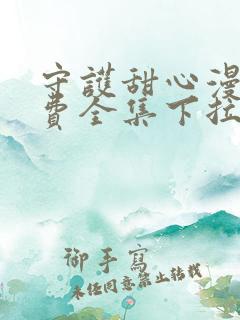 守護甜心漫
費全集下拉
御手寫
未經同意禁止轉載